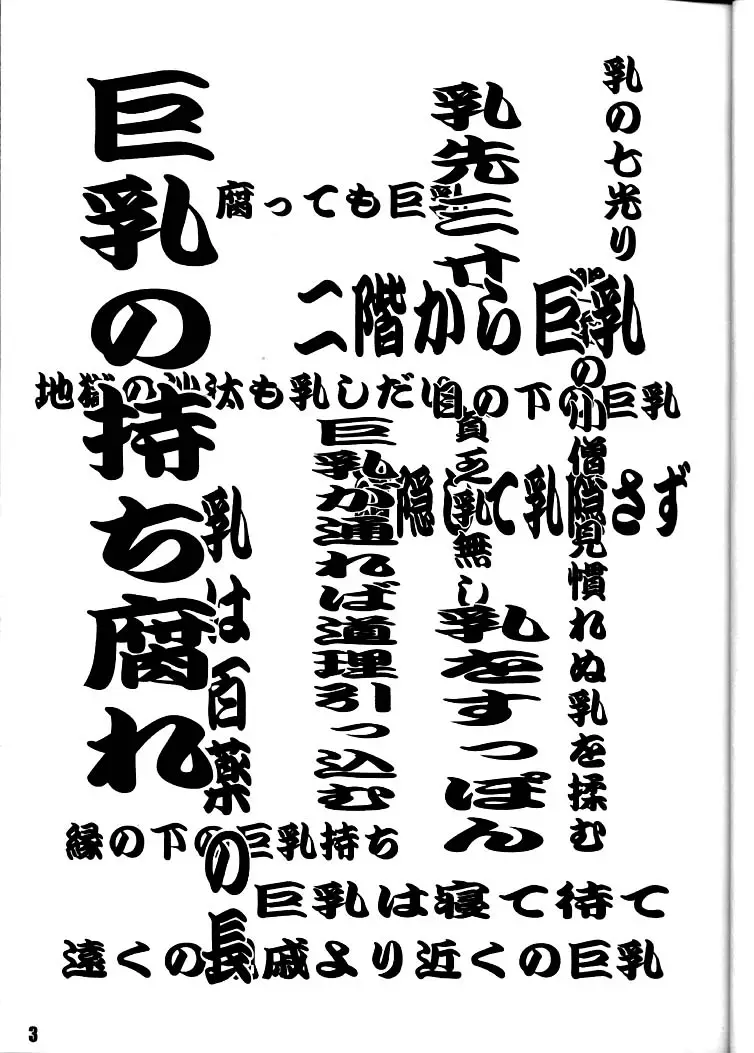 乳の七光り
門前の小僧見慣れぬ乳を揉む
乳先三寸
貧乏乳無し
乳をすっぽん
二階から巨乳
腐っても巨乳
地獄の沙汰も乳しだい
目の下の巨乳
隠して乳隠さず
巨乳が通れば道理引っ込む
乳は百薬の長
巨乳の持ち腐れ
縁の下の巨乳持ち
巨乳は寝て待て
遠くの親戚より近くの巨乳
3